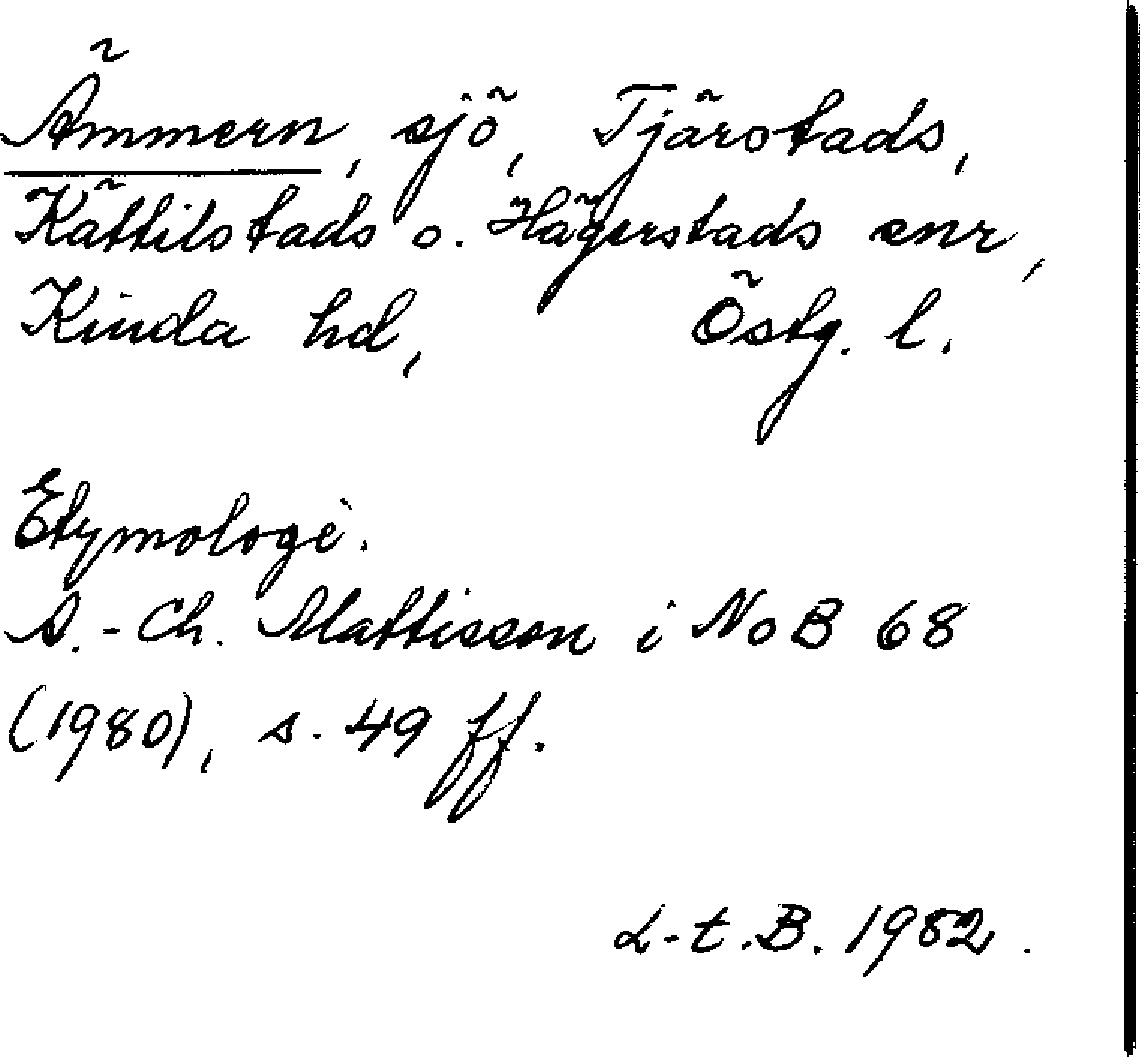 Ämmern, sjö, Tjärstads,
Kättilstads o. Hägerstads snr,
Kinda hd, Östg. l.
Etymologi.
A.-Ch. Mattisson i NoB 68
(1980), s. 49 ff.
L-t.B. 1982.